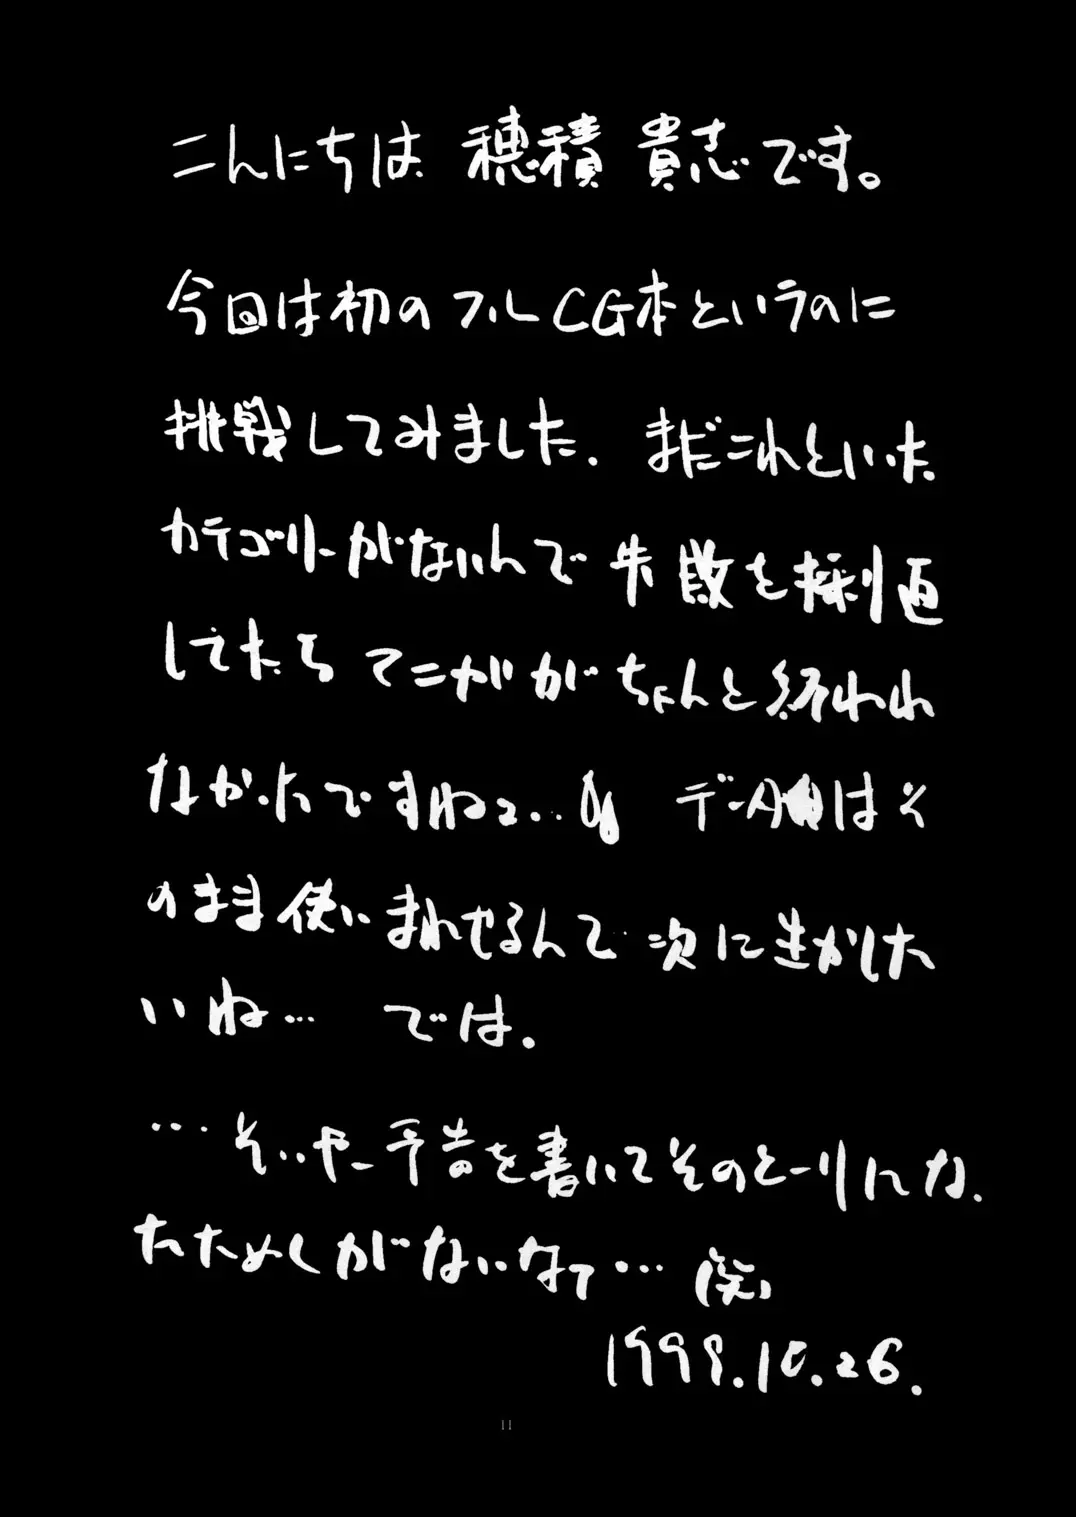 こんにちは 穂積 貴志です。
今回は初のフルCG本というのに
挑戦してみました. まだこれといった
カテゴリーがないんで 失敗を
してたら てニがが ちょんと 終われ
なかったですねェ… データは そ
のまま使いまわせるんで 次に生かした
いね… では.
…そいやー予告を書いてそのとーりにな.
たためしがないなァ… (笑)
1998.10.26.
11